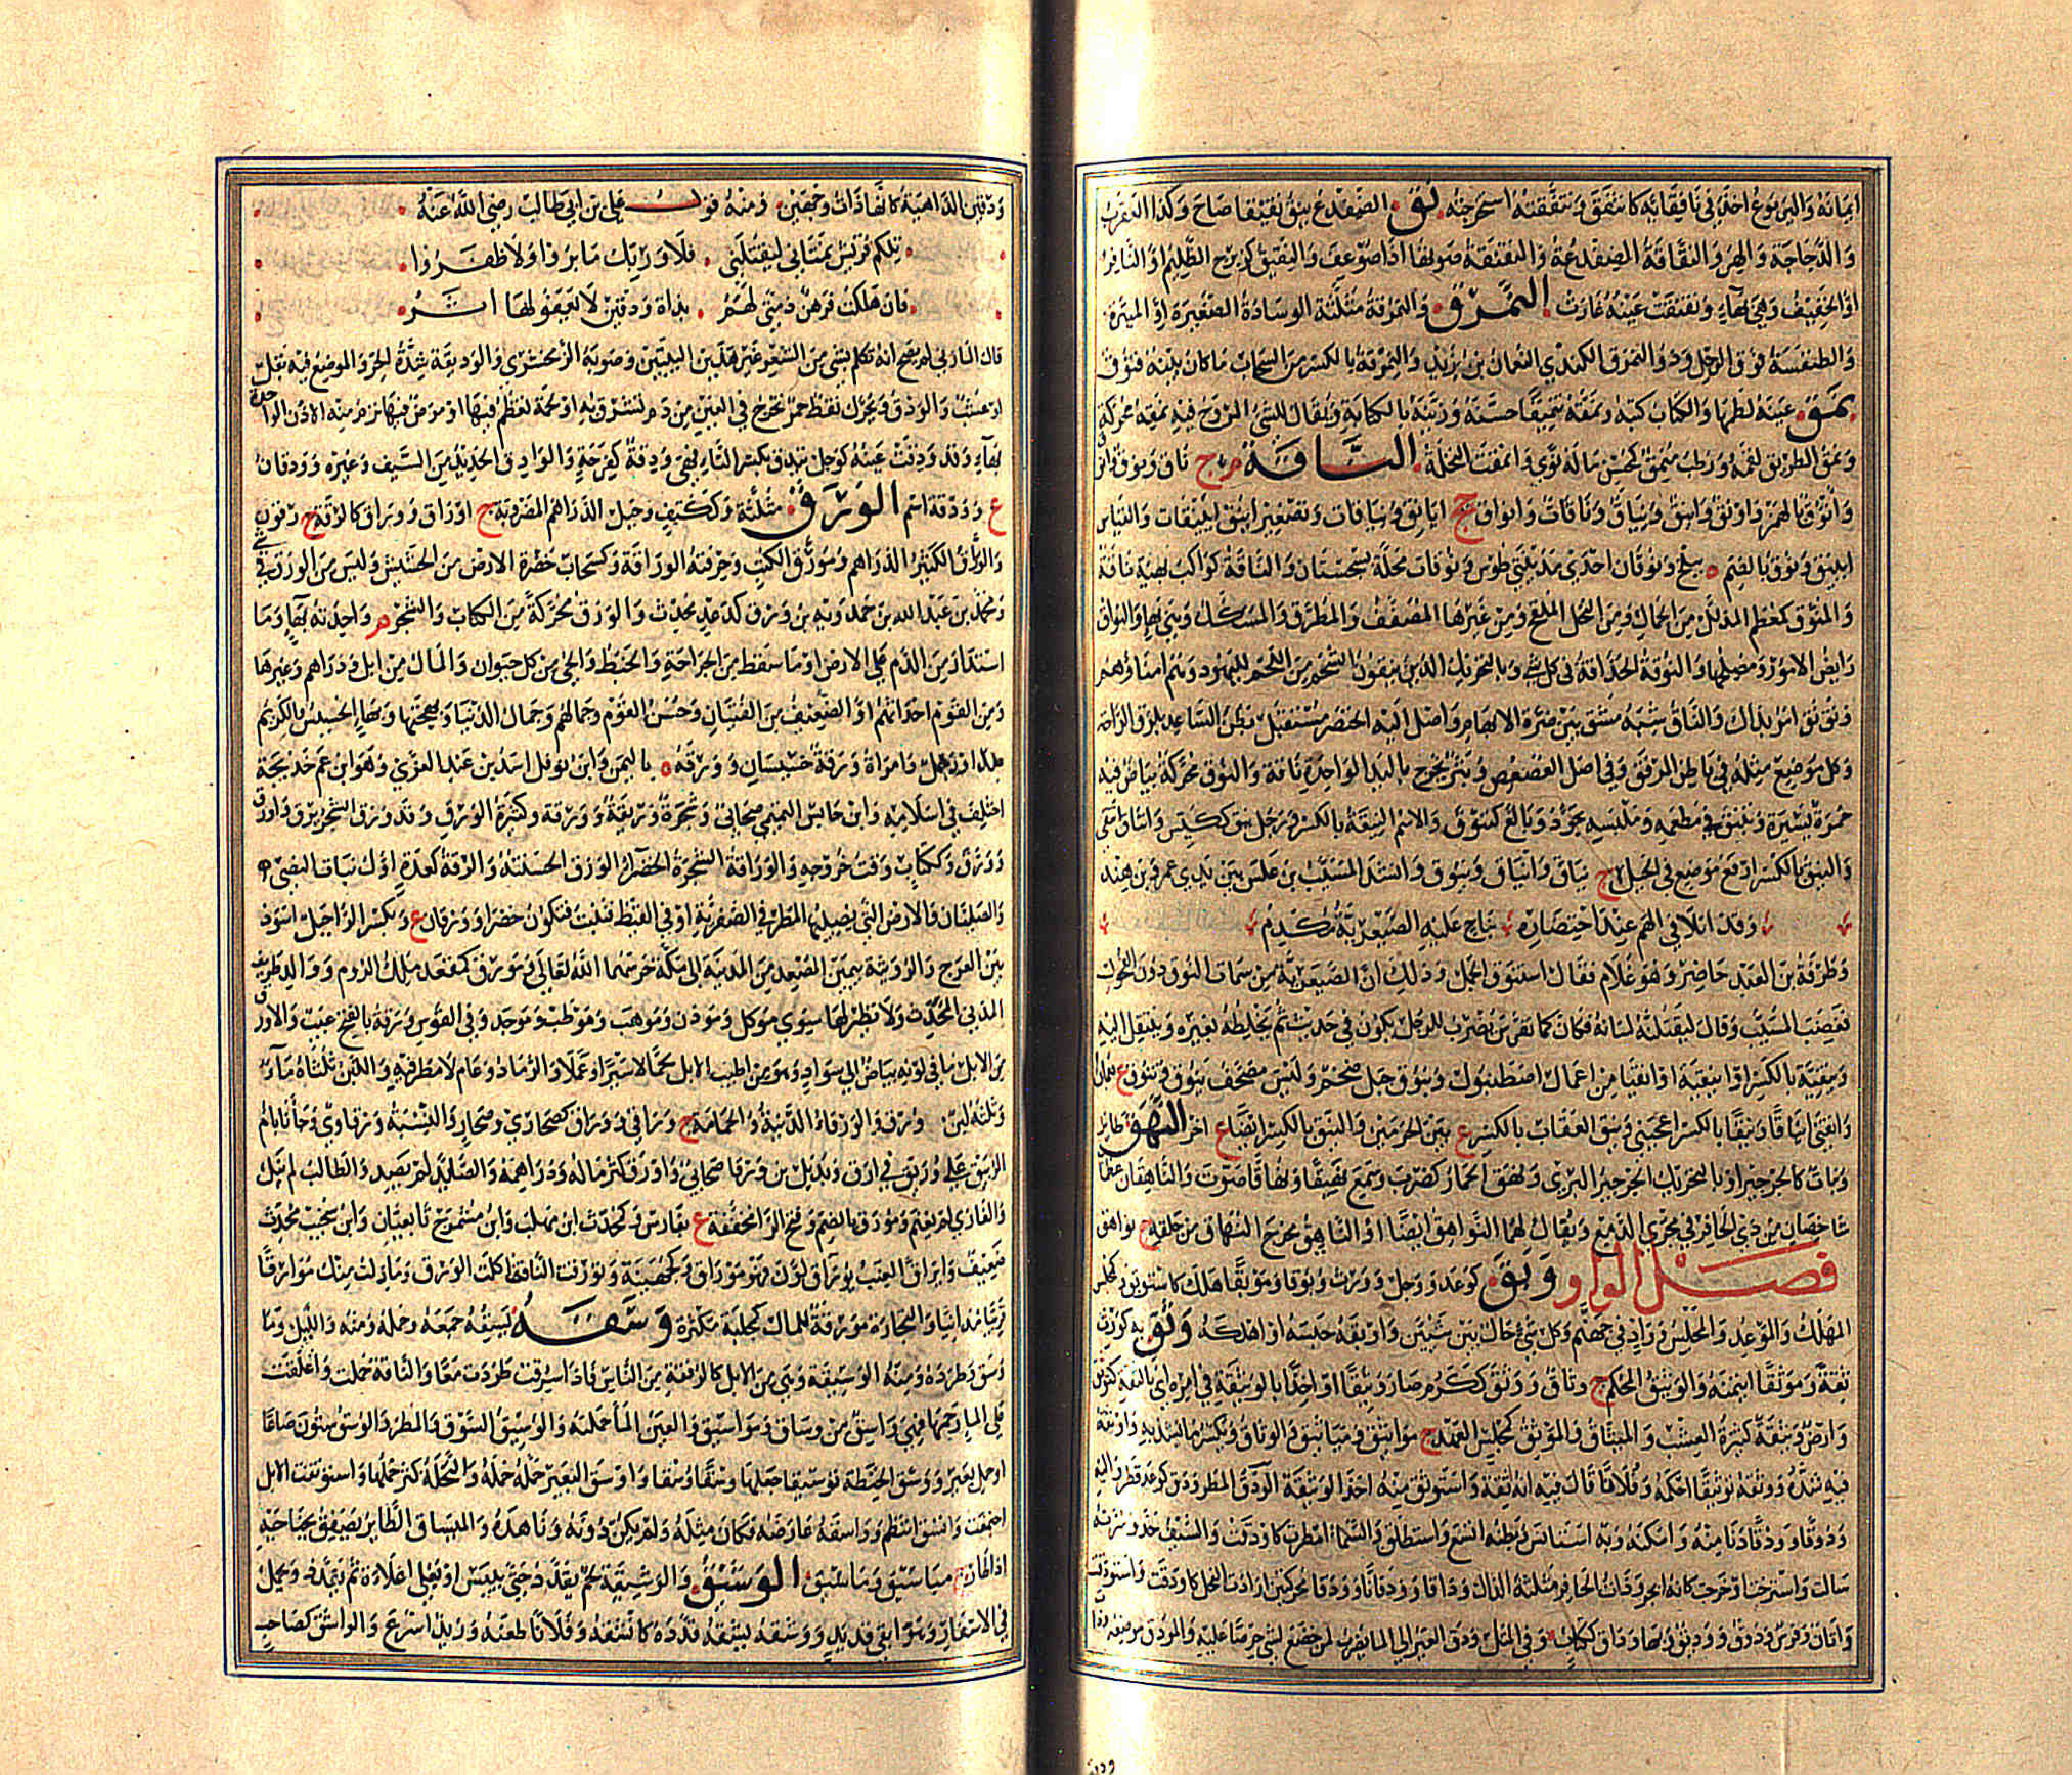 ايمانه واليربوع اخذ في نافقائه كانتفق وتنفقته استخرجته نق الضفدع ينق نقيقا صاح وكذا العقرب
والدجاجة والهر والنقاقة الضفدعة والنقنقة صوتها اذا ضوعف والنقنق كزبرج الظليم او النافر
او الخفيف وهي بهاء ونقنقت عينه غارت النمرق والنمرقة مثلثة الوسادة الصغيرة او الميثرة
والطنفسة فوق الرحل وذو النمرق الكندي النعمان بن يزيد والنمرقة بالكسر من السحاب ما كان بينه فتوق
نمق عينه لطمها والكتاب كتبه ونمقه تنميقا حسنه وزينه بالكتابة ويقال للشيء المروح فيه نمقة محركة
ونمق الطريق لقمه ورطب منمق كمحسن ما له نوى وانمقت النخلة الناقة م ج ناق ونوق وانوق
وانؤق بالهمز واونق وانيق ونياق وناقات وانواق جج ايانق ونياقات وتصغير اينق اييقات والقياس
اينيق ونوق بالضم ة ببلخ ونوقان احدى مدينتي طوس ونوقات محلة بسجستان والناقة كواكب بهيئة ناقة
والمنوق كمعظم المذلل من الجمال ومن النخل الملقح ومن غيرها المصفف والمطرق والمسكك وهي بهاء والنواق
رائض الامور ومصلحها والنوقة الحذاقة في كل شيء وبالتحريك الذين ينقون الشحم من اللحم لليهود وهم امناؤهم
ونق نق امر بذاك والناق شبه مشق بين ضرة الابهام واصل الية الخنصر مستقبل بطن الساعد بلزق الراحة
وكل موضع مثله في باطن المرفق وفي اصل العصعص وبثر يخرج باليد الواحدة ناقة والنوق محركة بياض فيه
حمرة يسيرة وتنيق في مطعمه وملبسه تجود وبالغ كتنوق والاسم النيقة بالكسر ورجل نيق ككيس وانتاق انتقى
والنيق بالكسر ارفع موضع في الجبل ج نياق وانياق ونيوق وانشد المسيب بن علس بين يدي عمرو بن هند
وقد اتلافى الهم عند احتضاره بناج عليه الصيعرية مكدم
وطرفة بن العبد حاضر وهو غلام فقال استنوق الجمل وذلك ان الصيعرية من سمات النوق دون الفحول
فغضب المسيب وقال ليقتلنه لسانه فكان كما تفرس يضرب للرجل يكون في حديث ثم يخلطه بغيره وينتقل اليه
ونيقية بالكسر او انيقية او انقيا من اعمال اصطنبول وينوق جبل ضخم وليس مصحف ينوف وتنوف ع بعمان
وانقني ايناقا ونيقا بالكسر اعجبني ونيق العقاب بالكسر ع بين الحرمين والنيق بالكسر ايضا ع اخر النهق طائر
ونبات كالجرجير او بالتحريك الجرجير البري ونهق الحمار كضرب وسمع نهيقا ونهاقا صوت والناهقان عظمان
شاخصان من ذي الحافر في مجرى الدمع ويقال لهما النواهق ايضا او الناهق مخرج النهاق من حلقه ج نواهق
فصل الواو وبق كوعد ووجل وورث وبوقا وموبقا هلك كاستوبق وكمجلس
المهلك والموعد والمحبس وواد في جهنم وكل شيء حال بين شيئين واوبقه حبسه او اهلكه وثق به كورث
ثقة وموثقا ائتمنه والوثيق المحكم ج وثاق ووثق ككرم صار وثيقا او اخذ بالوثيقة في امره اي بالثقة كتوثق
وارض وثيقة كثيرة العشب والميثاق والموثق كمجلس العهد ج مواثيق ومياثيق والوثاق ويكسر ما يشد به واوثقه
فيه شده ووثقه توثيقا احكمه وفلانا قال فيه انه ثقة واستوثق منه اخذ الوثيقة الودق المطر ودق كوعد قطر واليه
ودوقا وودقا دنا منه وامكنه وبه استانس وبطنه اتسع واستطلق والسماء امطرت كاودقت والسيف حد وسرته
سالت واسترخت او خرجت كانه ابجر وذات الحافر مثلثة الدال وداقا وودقانا وودقا محركتين ارادت الفحل كاودقت واستودقت
واتان وفرس ودوق ووديق وبها وداق ككتاب وفي المثل ودق العير الى الماء يضرب لمن خضع لشيء حرصا عليه والمودق موضعه وذات
ودق
ودقين الداهية كانها ذات وجهين ومنه قول علي بن ابي طالب رضي الله عنه
تلكم قريش تمناني لتقتلني فلا وربك ما بروا ولا ظفروا
فان هلكت فرهن ذمتي لهم بذات ودقين لا يعفو لها اثر
قال المازني لم يصح انه تكلم بشيء من الشعر غير هذين البيتين وصوبه الزمخشري والوديقة شدة الحر والموضع فيه بقل
او عشب والودق ويحرك نقط حمر تخرج في العين من دم تشرق به او لحمة تعظم فيها او مرض فيها ترم منه الاذن الواحدة
بهاء وقد ودقت عينه كوجل تيدق بكسر التاء فهي ودقة كفرحة والوادق الحديد من السيف وغيره وودقان
ع وودقة اسم الورق مثلثة وككتف وجبل الدراهم المضروبة ج اوراق ووراق كالرقة ج رقون
والوراق الكثير الدراهم ومورق الكتب وحرفته الوراقة وكسحاب خضرة الارض من الحشيش وليس من الورق في
ومحمد بن عبد الله بن حمدويه بن ورق كدعد محدث والورق محركة من الكتاب والشجر م واحدته بهاء وما
استدار من الدم على الارض او ما سقط من الجراحة والخبط والحي من كل حيوان والمال من ابل ودراهم وغيرها
ومن القوم احداثهم او الضعيف من الفتيان وحسن القوم وجمالهم وجمال الدنيا وبهجتها وبهاء الخسيس والكريم
ضد ورجل ورق وامراة ورقة خسيسان وورقة ة باليمن وابن نوفل اسد بن عبد العزى وهو ابن عم خديجة
اختلف في اسلامه وابن حابس التميمي صحابي وشجرة وريقة وورقة وكثيرة الورق وقد ورق الشجر يرق واورق
وورق وككتاب وقت خروجه والوراقة الشجرة الخضراء الورق الحسنته والرقة كعدة اول نبات النصي
والصليان والارض التي يصيبها المطر في الصفرية او في القيظ فتنبت فتكون خضراء وورقان ع وبكسر الراء جبل اسود
بين العرج والرويثة بيمين المصعد من المدينة الى مكة حرسهما الله تعالى ومورق كمقعد ملك الروم ووالد طريف
المدني المحدث ولا نظير لها سوى موكل وموزن وموهب وموظب وموحد وفي القوس ورقة بالفتح عيب والاورق
من الابل ما في لونه بياض الى سواد وهو من اطيب الابل لحما لا سيرا وعملا والرماد وعام لا مطر فيه واللبن ثلثاه ماء
وثلثه لبن ورق والورقاء الذئبة والحمامة ج وراقى ووراق كصحارى وصحار والنسبة ورقاوي وجاءنا بام
الربيق على وريق في ارق وبديل بن ورقا صحابي واورق كثر ماله ودراهمه والصائد لم يصد والطالب لم ينل
والغازي لم يغنم ومورق بالضم وفتح الراء مخففة ع بفارس وكمحدث ابن مهلب وابن مشمرج تابعيان وابن سخيت محدث
ضعيف وايراق العنب يوراق لون فهو موراق وكجهينة وتورقت الناقة اكلت الورق وما زلت منك موارقا
قريبا مدانيا والتجارة مورقة للمال كمجلبة مكثرة وسقه يسقه جمعه وحمله ومنه والليل وما
وسق وطرده ومنه الوسيقة وهي من الابل كالرفقة من الناس فاذا سرقت طردت معا والناقة حملت واغلقت
على الماء رحمها فهي واسق من وساق ومواسيق والعين الماء حملته والوسيق السوق والمطر والوسق ستون صاعا
او حمل بعير ووسق الحنطة توسيقا جعلها وسقا وسقا واوسق البعير حمله حمله والنخلة كثر حملها واستوسقت الابل
اجتمعت واتسق انتظم وواسقه عارضه فكان مثله ولم يكن دونه وناهده والميساق الطائر يصفق بجناحيه
اذا طار ج مياسيق ومآسيق الوشيق والوشيقة لحم يقدد حتى ييبس او يغلى اغلاءة ثم يقدد ويحمل
في الاسفار وهو ابقى قديد ووشقه يشقه قدده كاتشقه وفلانا طعنه وزيد اسرع والواشق كصاحب